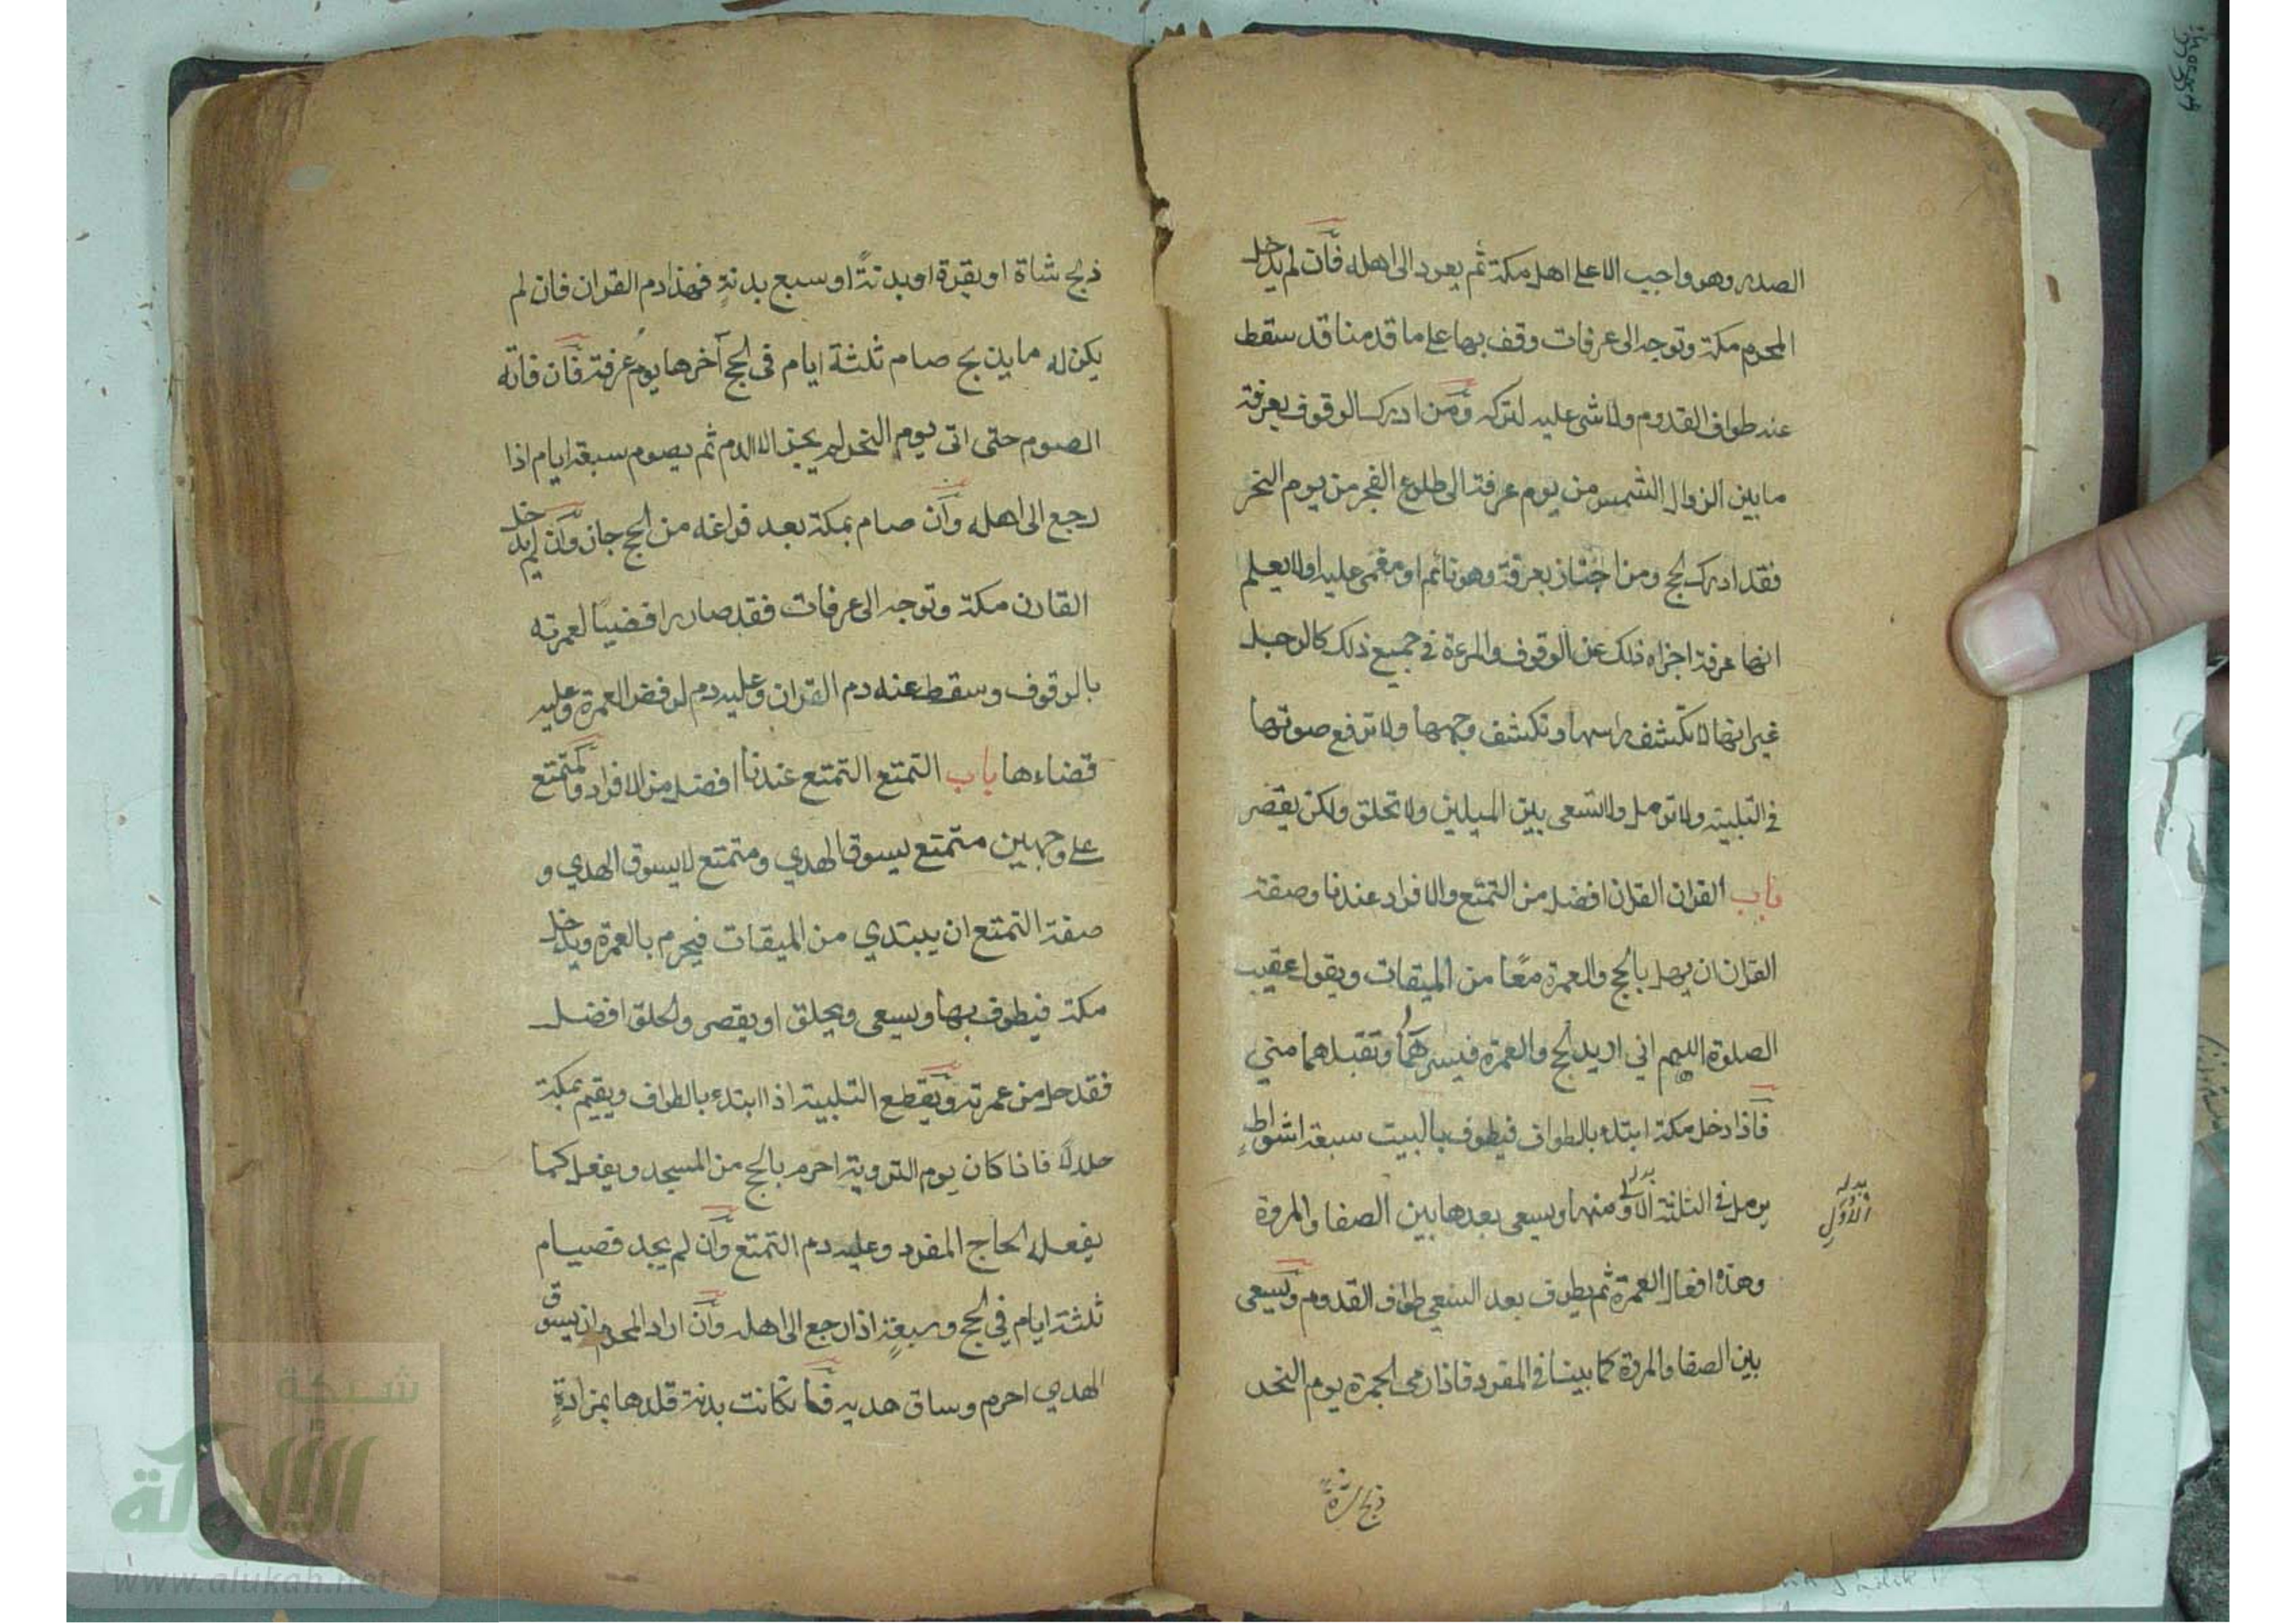 الصدر وهو واجب الا على اهل مكة ثم يعود الى اهله فان لم يدخل
المحرم مكة وتوجه الى عرفات وقف بها على ما قدمنا قد سقط
عنه طواف القدوم ولا شى عليه لتركه ومن ادرك الوقوف بعرفة
ما بين الزوال الشمس من يوم عرفة الى طلوع الفجر من يوم النحر
فقد ادرك الحج ومن اجتاز بعرفة وهو نائم او مغمى عليه او لا يعلم
انها عرفة اجزاه ذلك عن الوقوف والمرءة في جميع ذلك كالرجل
غير انها لا تكشف راسها وتكشف وجهها ولا ترفع صوتها
في التلبية ولا ترمل ولا تسعى بين الميلين ولا تحلق ولكن يقصر
باب القران القران افضل من التمتع والافراد عندنا وصفة
القران ان يهل بالحج والعمرة معًا من الميقات ويقول عقيب
الصلوة اللهم اني اريد الحج والعمرة فيسرهما وتقبلهما مني
فاذا دخل مكة ابتدء بالطواف فيطوف بالبيت سبعة اشواطٍ
يرمل في الثلثة الاولى منها ويسعى بعدها بين الصفا والمروة
بدله الاُوَلِ
وهذه افعال العمرة ثم يطوف بعد السعي طواف القدوم ويسعى
بين الصفا والمروة كما بينا في المفرد فاذا رمى الجمرة يوم النحر
ذبح شاة
ذبح شاة او بقرة او بدنةً او سبع بدنةٍ فهذا دم القران فان لم
يكن له ما يذبح صام ثلثة ايام في الحج آخرها يومُ عرفة فان فاته
الصوم حتى اتى يوم النحر لم يجز الا الدم ثم يصوم سبعة ايام اذا
رجع الى اهله وان صام بمكة بعد فراغه من الحج جاز وان لم يدخل
القارن مكة وتوجه الى عرفات فقد صار رافضيًا لعمرته
بالوقوف وسقط عنه دم القران وعليه دم لرفض العمرة وعليه
قضاءها باب التمتع التمتع عندنا افضل من الافراد والمتمتع
على وجهين متمتع يسوق الهدي ومتمتع لا يسوق الهدي و
صفة التمتع ان يبتدي من الميقات فيحرم بالعمرة ويدخل
مكة فيطوف بها ويسعى ويحلق او يقصر والحلق افضل
فقد حل من عمرته ويقطع التلبية اذا ابتدء بالطواف ويقيم بمكة
حلالًا فاذا كان يوم التروية احرم بالحج من المسجد ويفعل كما
يفعله الحاج المفرد وعليه دم التمتع وان لم يجد فصيام
ثلثة ايام في الحج وسبعةٍ اذا رجع الى اهله وان اراد المحرم ان يسوق
الهدي احرم وساق هديه فان كانت بدنة قلدها بمزادةٍ
شبكة
الألوكة
www.alukah.net